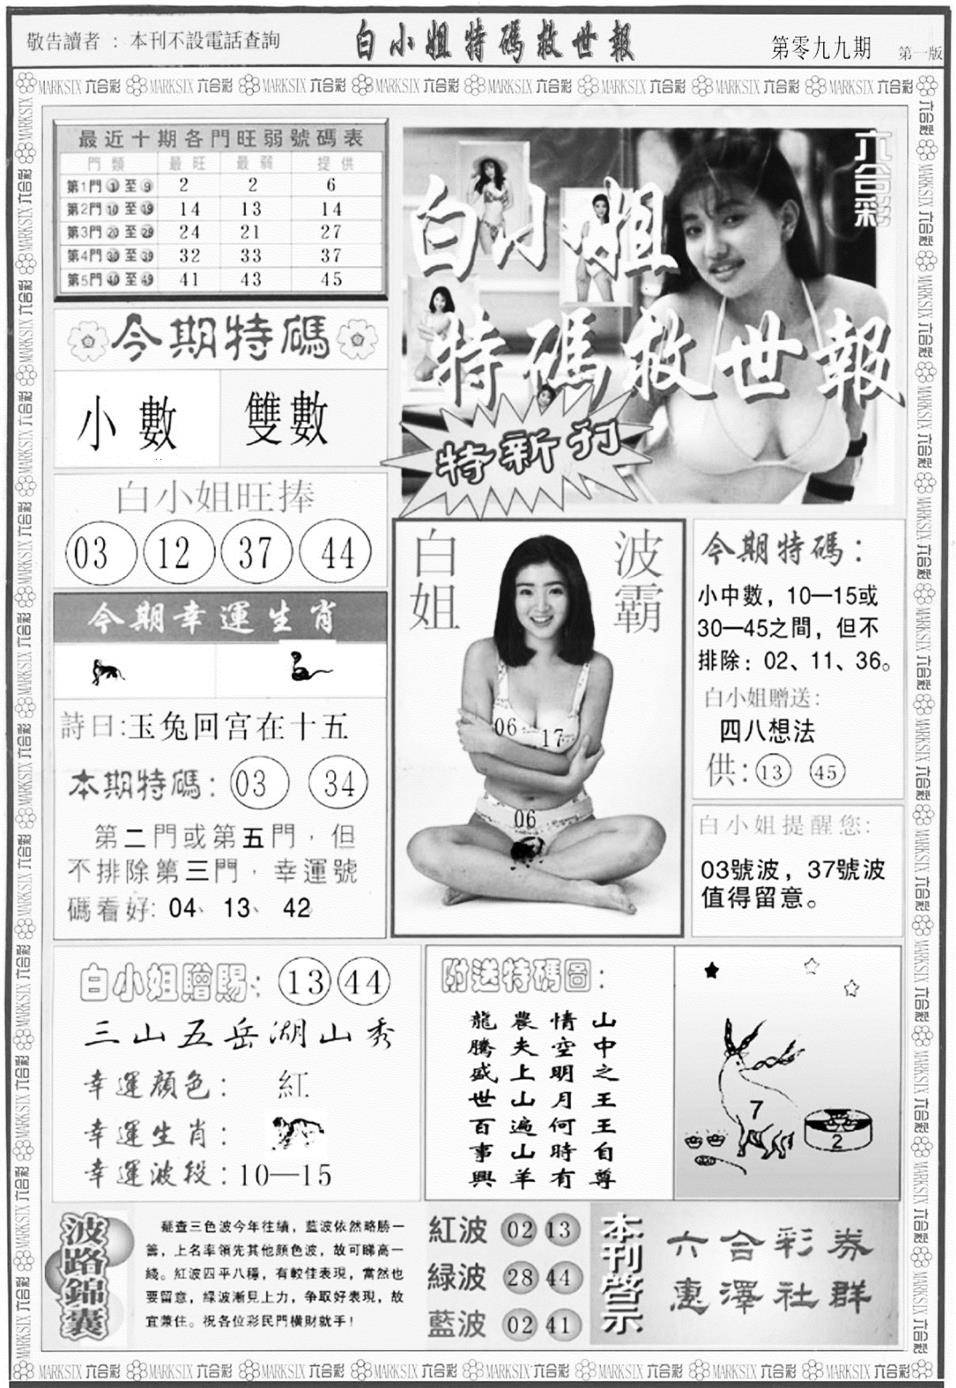 敬告讀者 : 本刊不設電話查詢
白小姐特碼救世報
第零九九期
第一版
MARKSIX 六合彩
最近十期各門旺弱號碼表
門類 最旺 最弱 提供
第1門 ① 至 ⑨ 2 2 6
第2門 ⑩ 至 ⑲ 14 13 14
第3門 ⑳ 至 ㉙ 24 21 27
第4門 ㉚ 至 ㊴ 32 33 37
第5門 ㊵ 至 ㊾ 41 43 45
六合彩
白小姐
特碼救世報
特新刊
今期特碼
小數 雙數
白小姐旺捧
03 12 37 44
今期幸運生肖
詩曰:玉兔回宮在十五
本期特碼: 03 34
第二門或第五門，但
不排除第三門，幸運號
碼看好: 04、13、42
白姐
波霸
06 17
06
今期特碼：
小中數，10—15或
30—45之間，但不
排除：02、11、36。
白小姐贈送:
四八想法
供: 13 45
白小姐提醒您:
03號波，37號波
值得留意。
白小姐贈賜: 13 44
三山五岳湖山秀
幸運顏色: 紅
幸運生肖:
幸運波段:10—15
附送特碼圖:
山中之王王自尊
情空明月何時有
農夫上山遍山羊
龍騰盛世百事興
7
2
波路錦囊
從查三色波今年往績，藍波依然略勝一
籌，上名率領先其他顏色波，故可睇高一
綫。紅波四平八穩，有較佳表現，當然也
要留意，綠波漸見上力，爭取好表現，故
宜兼住。祝各位彩民門橫財就手！
紅波 02 13
綠波 28 44
藍波 02 41
本刊啓示
六合彩券
惠澤社群